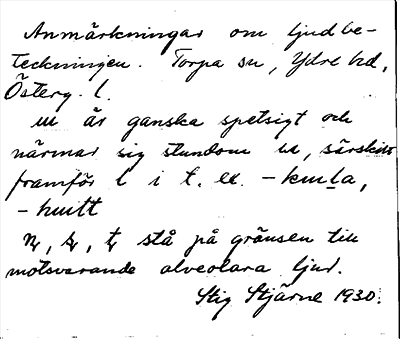 Anmärkningar om ljudbe-
teckningen. Torpa sn, Ydre hd,
Österg. l.
ɯ är ganska spetsigt och
närmar sig stundom u, särskilt
framför l i t. ex. -kɯla,
-hɯtt
ꞃ, ʂ, ʈ stå på gränsen till
motsvarande alveolara ljud.
Stig Stjärne 1930.